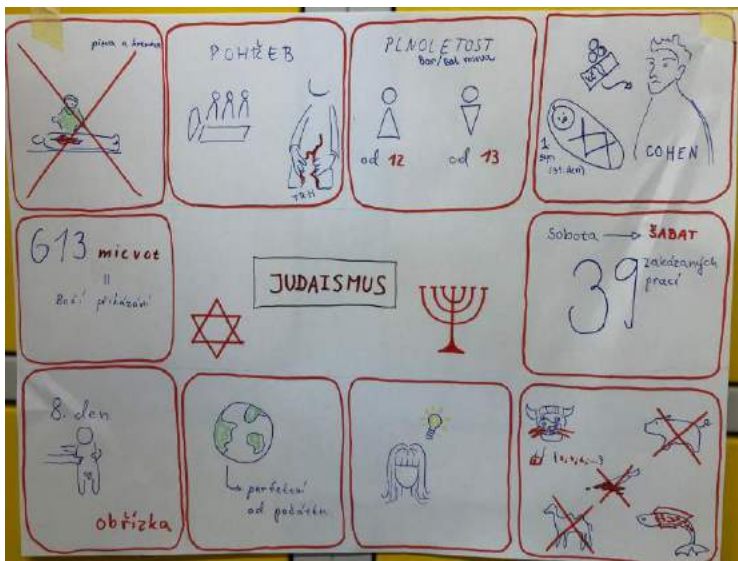 POHŘEB
TRH
PLNOLETOST
Bar/Bat micva
od 12
od 13
COHEN
613 micvot
=
Boží přikázání
JUDAISMUS
Sobota → ŠABAT
39 zakázaných
prací
8. den
obřízka
perfektní
od počátku